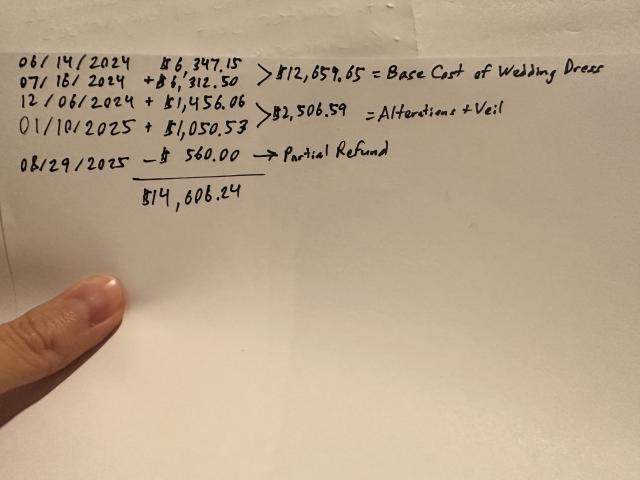 06/14/2024 $6,347.15
07/16/2024 +$6,312.50 >$12,659.65 = Base Cost of Wedding Dress
12/06/2024 + $1,456.06
01/10/2025 + $1,050.53 >$2,506.59 = Alterations + Veil
08/29/2025 - $ 560.00 → Partial Refund
$14,606.24